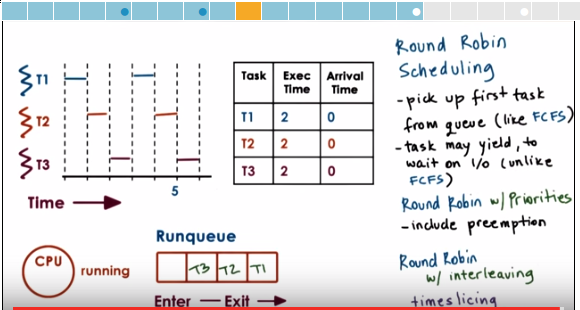 T1
T2
T3
5
Time
Task Exec Time Arrival Time
T1 2 0
T2 2 0
T3 2 0
CPU
running
Runqueue
T3 T2 T1
Enter — Exit
Round Robin
Scheduling
-pick up first task
from queue (like FCFS)
-task may yield, to
wait on I/O (unlike
FCFS)
Round Robin w/ Priorities
-include preemption
Round Robin
w/ interleaving
timeslicing